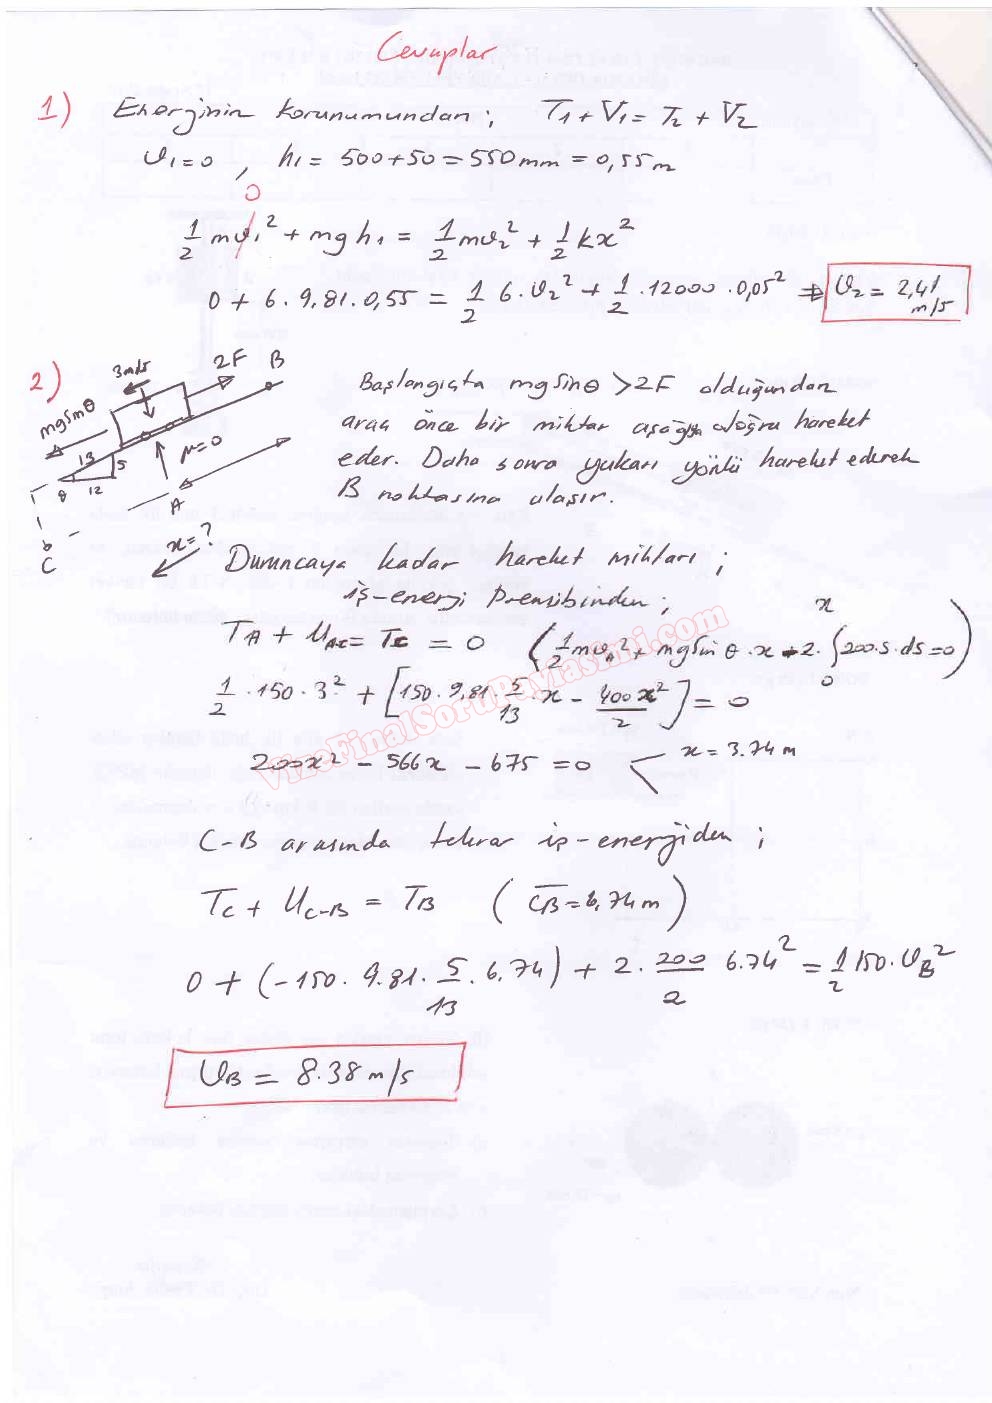 Cevaplar
1) Enerjinin korunumundan; T₁+V₁ = T₂ + V₂
ϑ₁=0 , h₁ = 500+50 = 550mm = 0,55m
0
1/2 mϑ₁² + mgh₁ = 1/2 mϑ₂² + 1/2 kx²
0 + 6.9,81.0,55 = 1/2 6.ϑ₂² + 1/2 .12000.0,05² ⇒ ϑ₂ = 2,41 m/s
2)
3m/s 2F B
mgsinθ
13 5 μ=0
θ 12 A
C x=?
Başlangıçta mgsinθ > 2F olduğundan
araç önce bir miktar aşağıya doğru hareket
eder. Daha sonra yukarı yönlü hareket ederek
B noktasına ulaşır.
Duruncaya kadar hareket miktarı;
iş-enerji prensibinden;
T_A + U_AC = T_C = 0 (1/2 mϑ_A² + mgsinθ.x - 2.∫₀ˣ 200.s.ds=0)
1/2 .150.3² + [150.9,81.5/13 x - 400x²/2] = 0
200x² - 566x - 675 = 0 < x = 3.74m
VizeFinalSoruPaylasimi.com
C-B arasında tekrar iş-enerjiden;
T_C + U_C-B = T_B (CB=6,74m)
0 + (-150.9.81.5/13.6.74) + 2.200/2 6.74² = 1/2 150.ϑ_B²
ϑ_B = 8.38 m/s